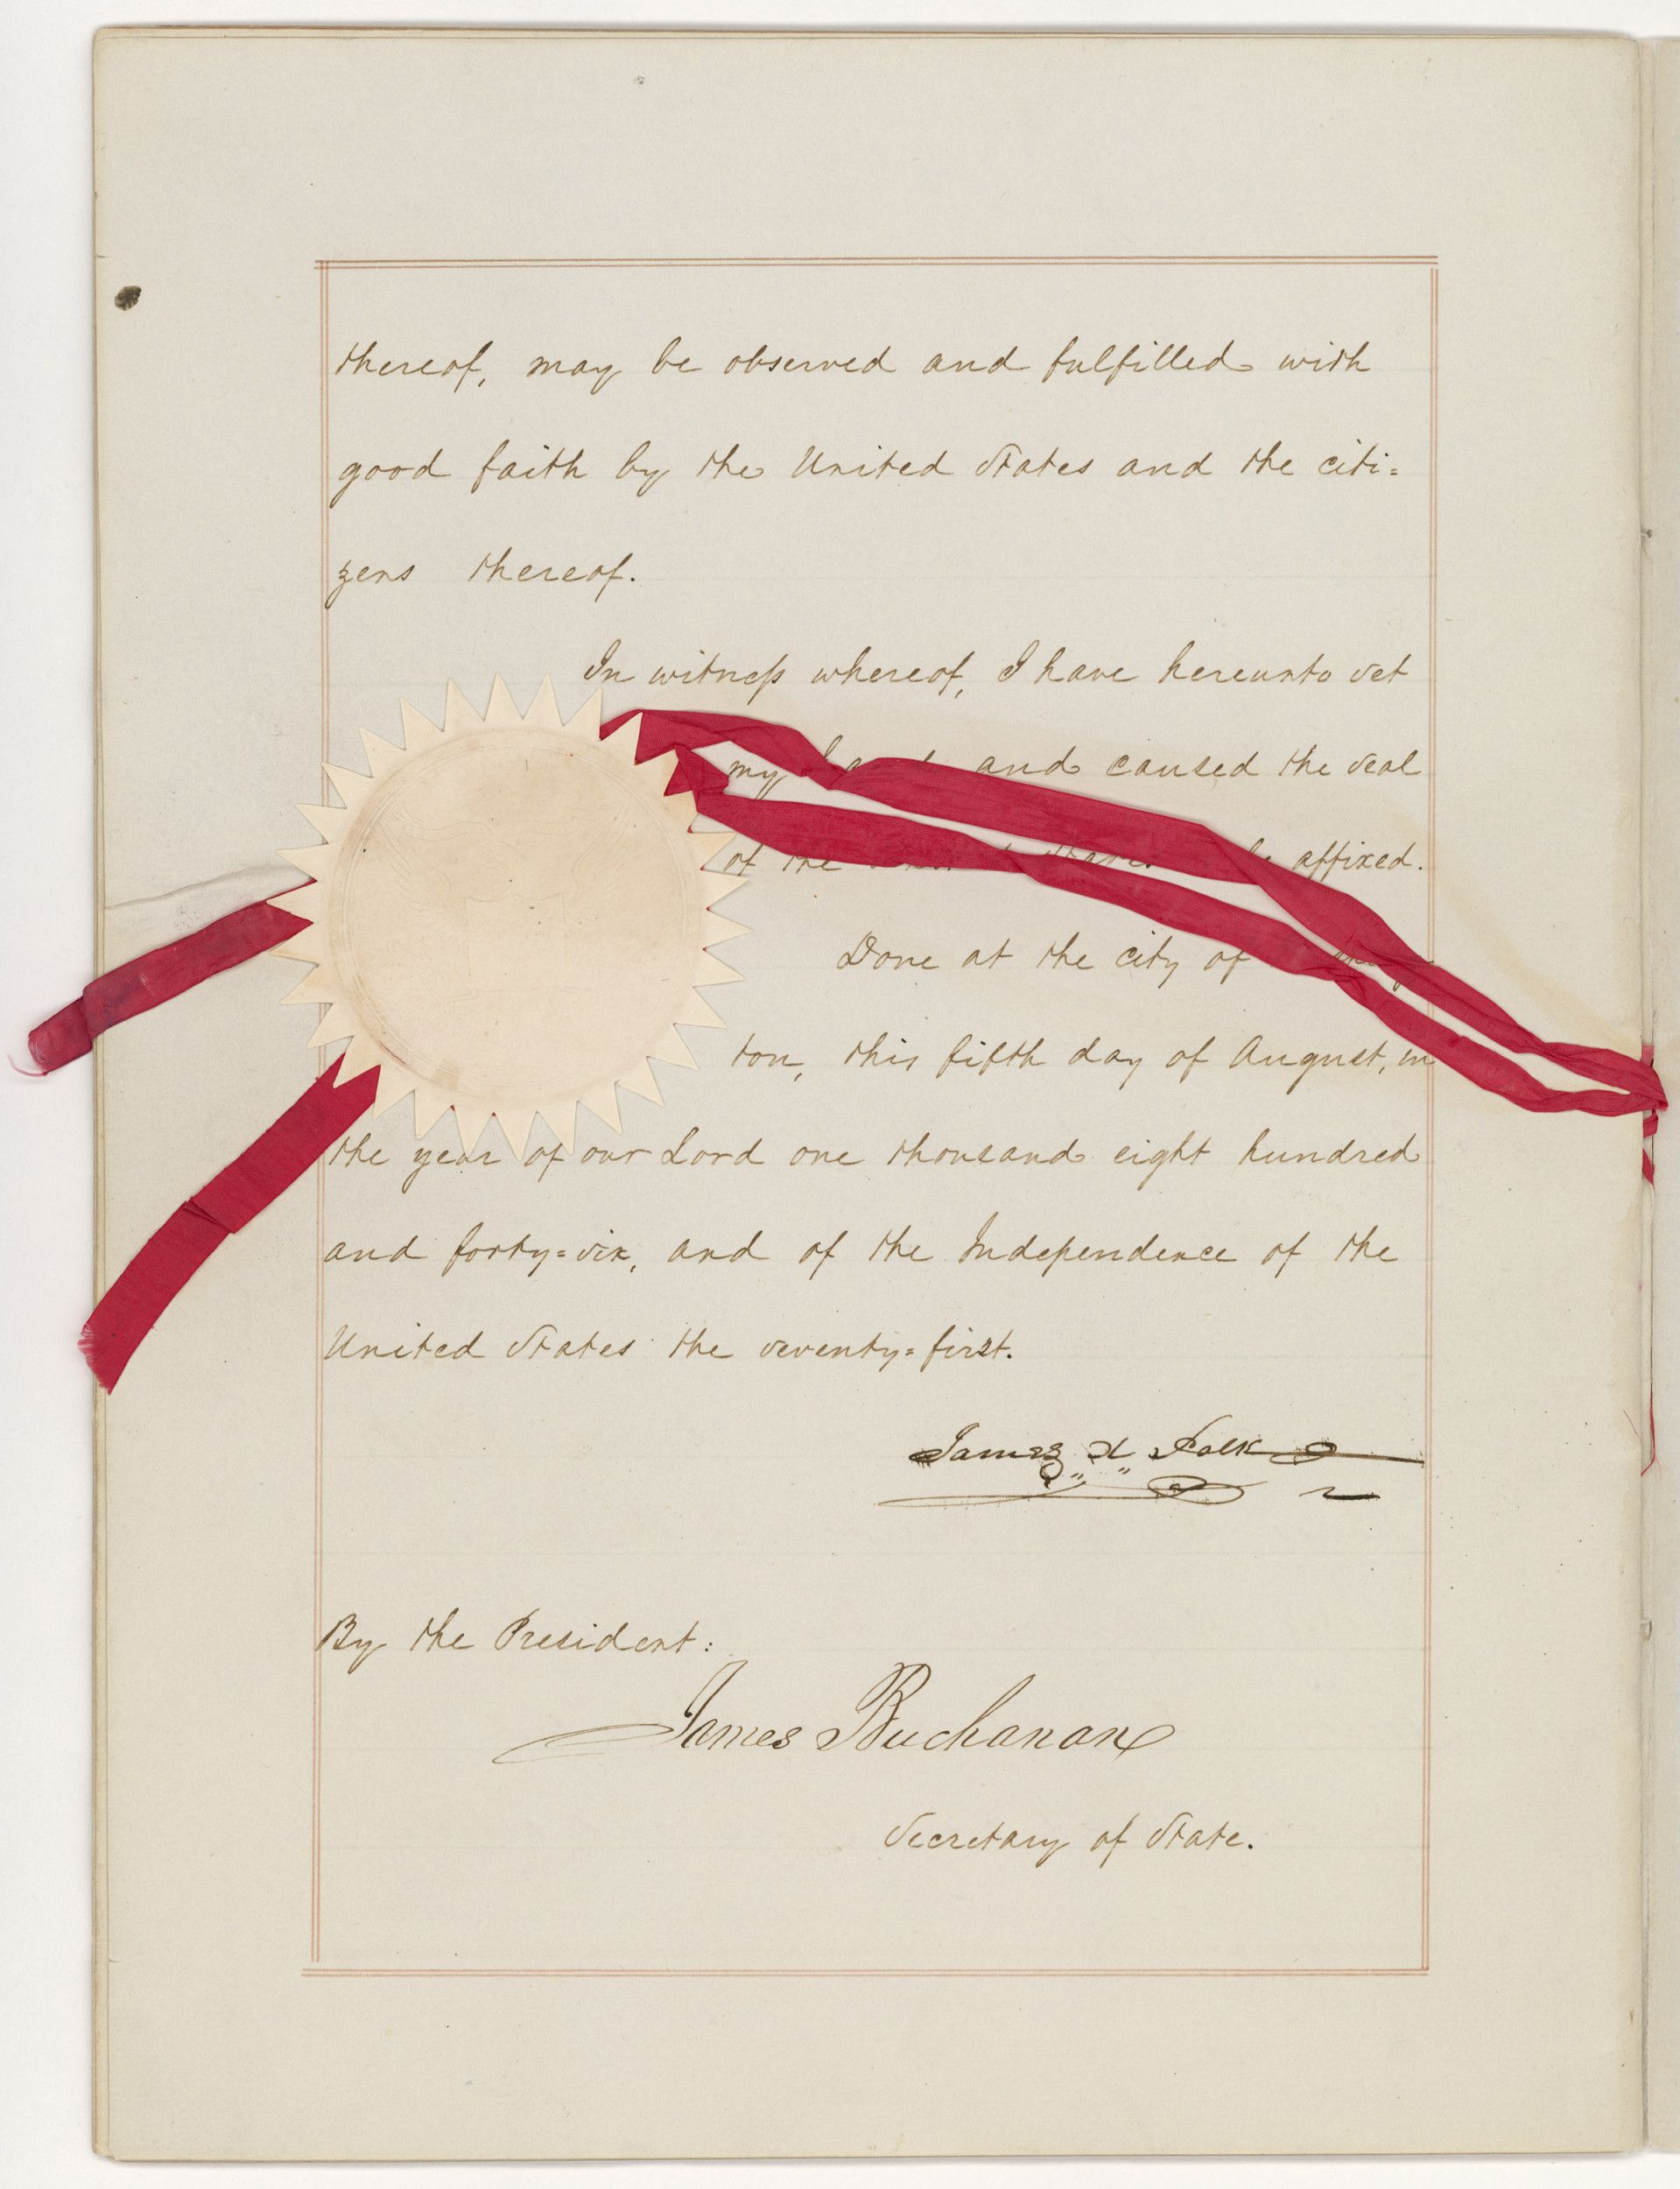 thereof, may be observed and fulfilled with
good faith by the United States and the citi=
zens thereof.
In witness whereof, I have hereunto set
my hand and caused the seal
of the United States be affixed.
Done at the city of
ton, this fifth day of August, in
the year of our Lord one thousand eight hundred
and forty=six, and of the Independence of the
United States the seventy=first.
James K Polk
By the President:
James Buchanan
Secretary of State.